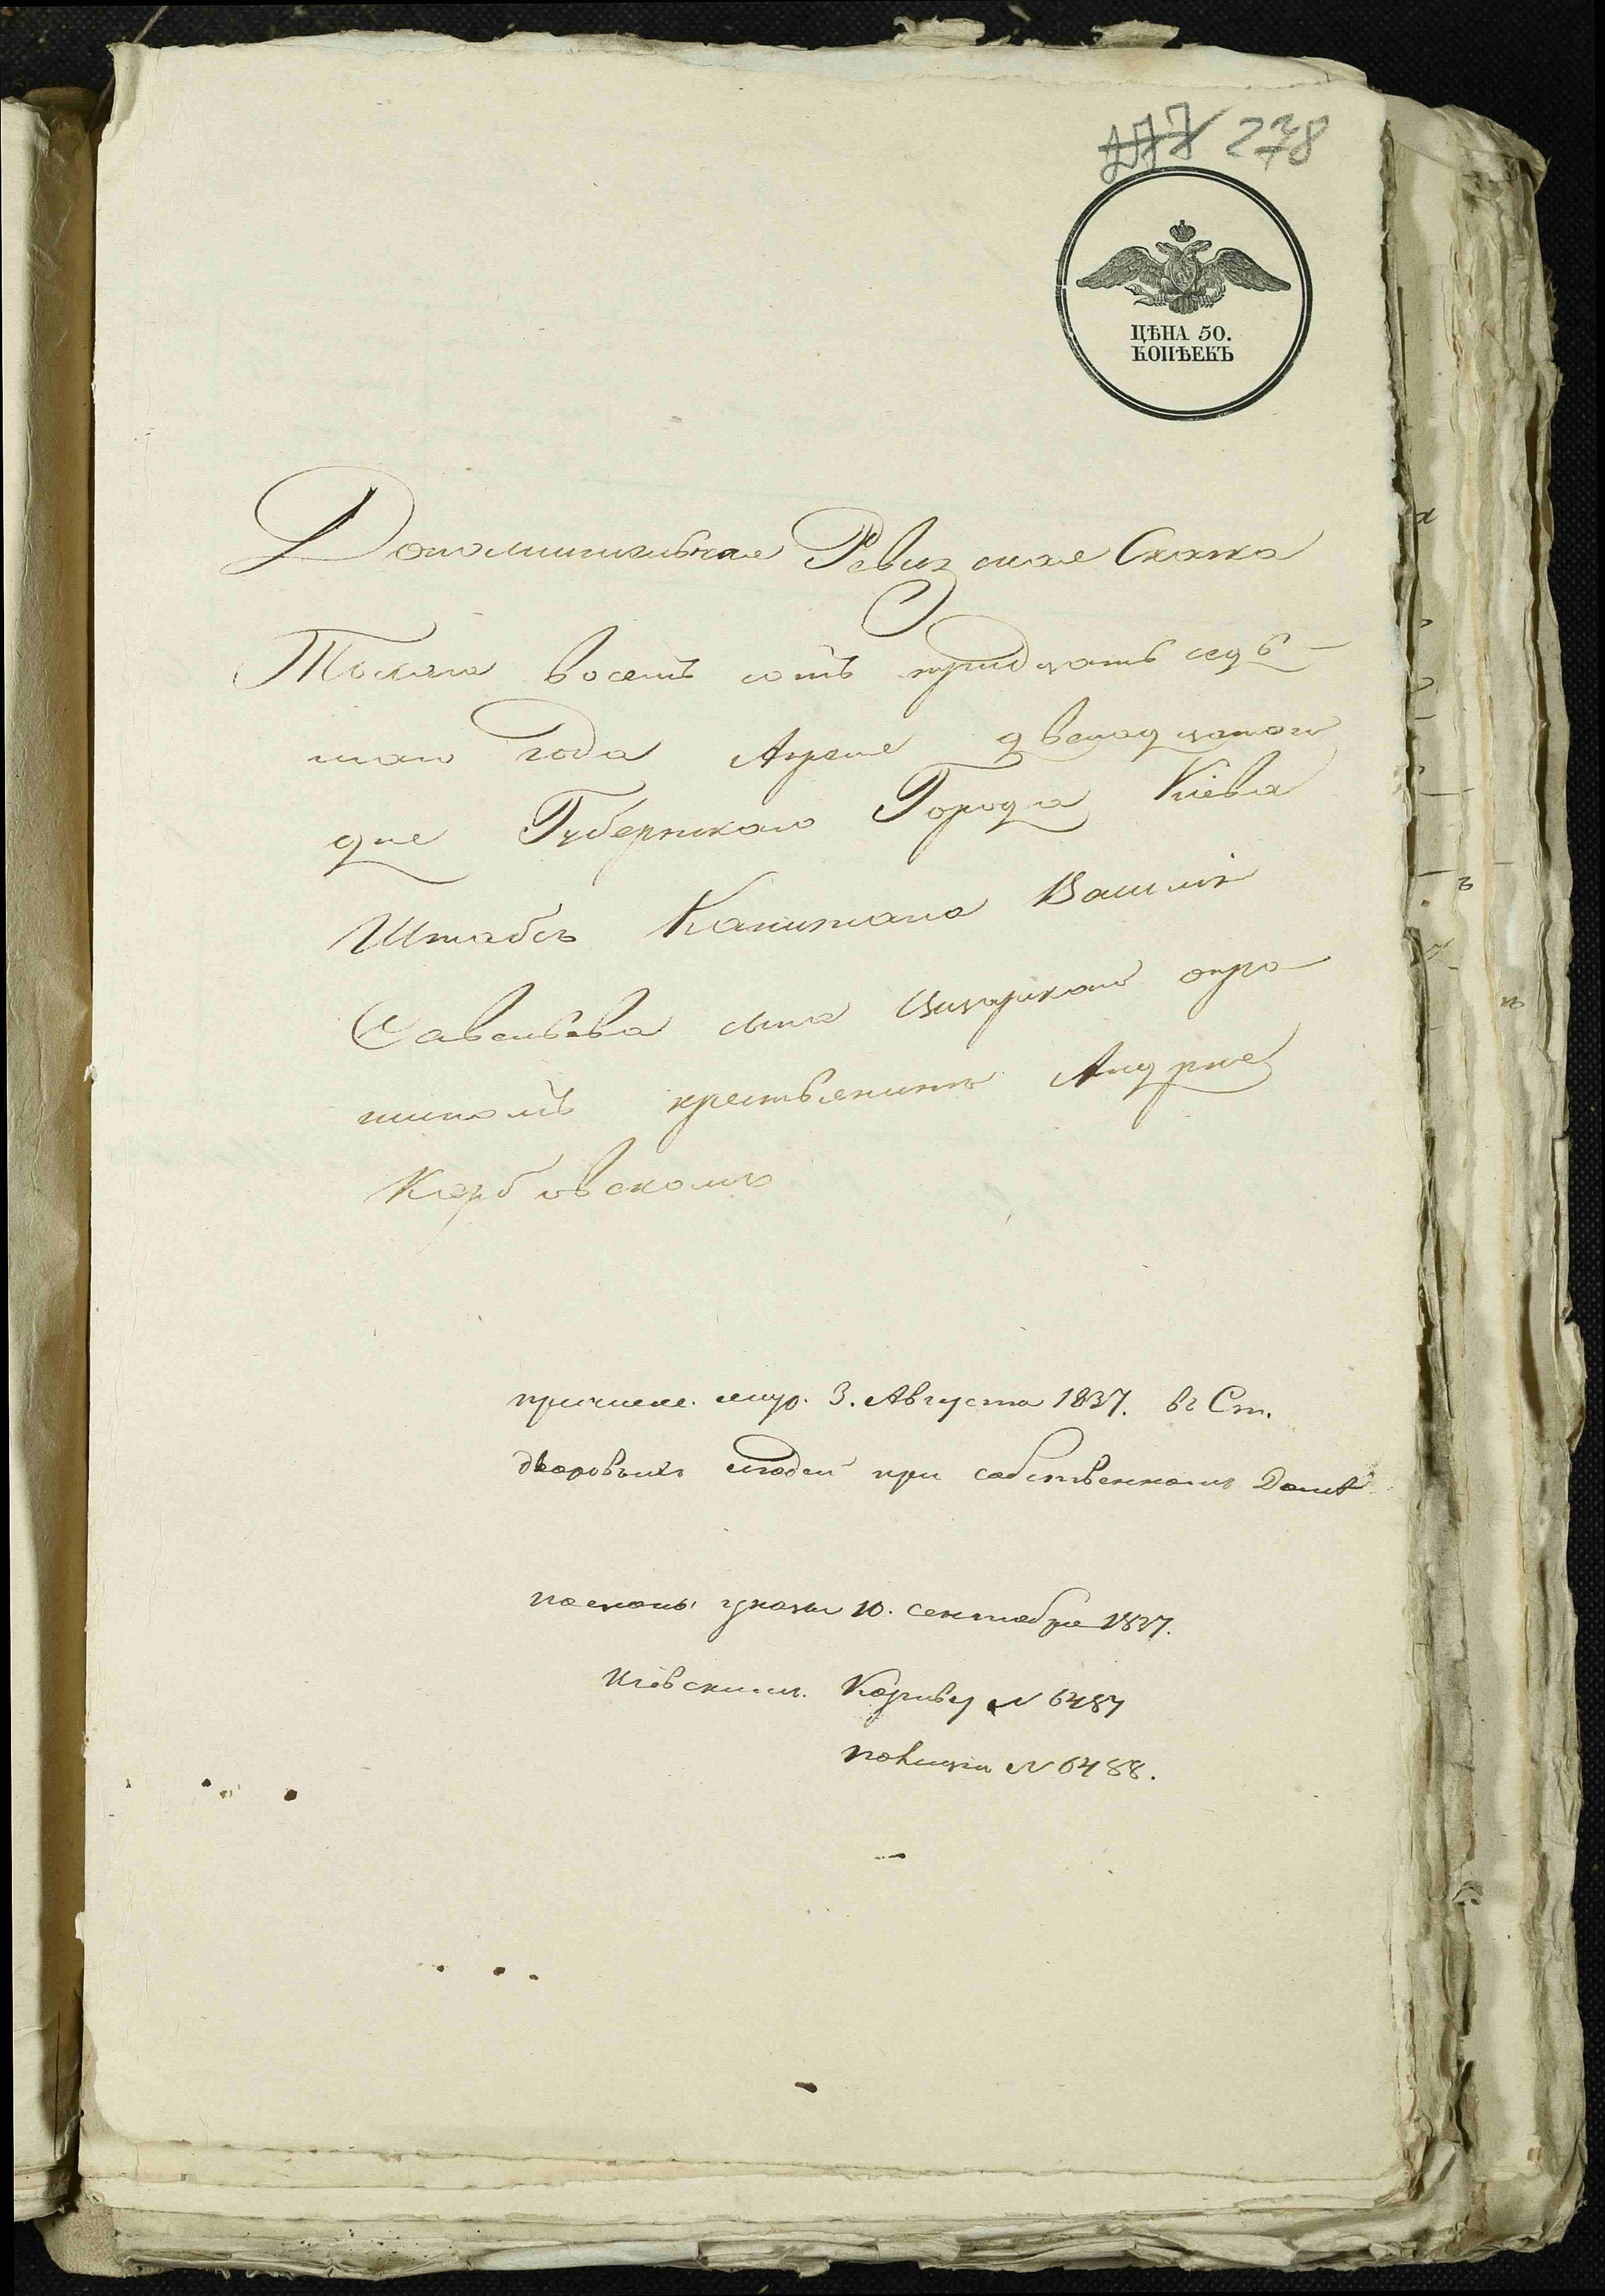 277 278
ЦѢНА 50.
КОПѢЕКЪ
Дополнительная Ревизская Скаска
Тысяча восемь сотъ тридцать седь-
маго года Апреля двенадцатого
дня Губернскаго Города Кіева
Штабсъ Капитана Василія
Савельева сына
крествянинъ Андрие
причисле. 3. Августа 1837. въ Ст.
дворовыхъ людей при собственномъ Домѣ
посланы указы 10. сентября 1837.
Кіевскимъ. №6487
полиціи №6488.